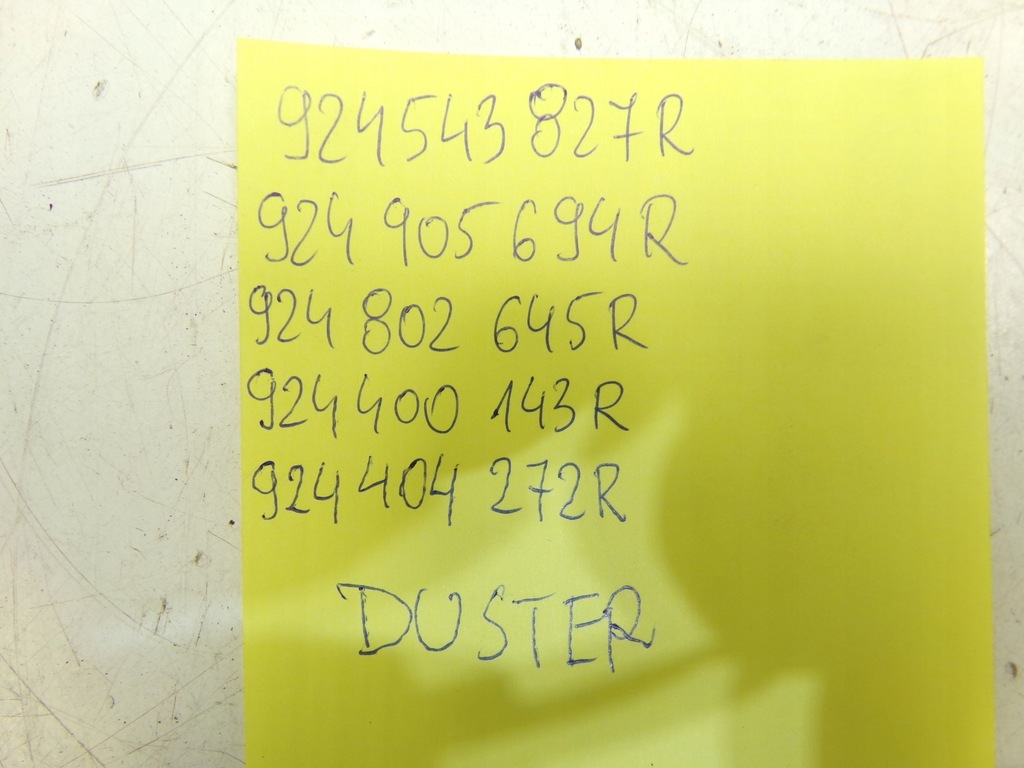 924543 827R
924 905 694R
924 802 645R
924 400 143R
924 404 272R
DUSTER